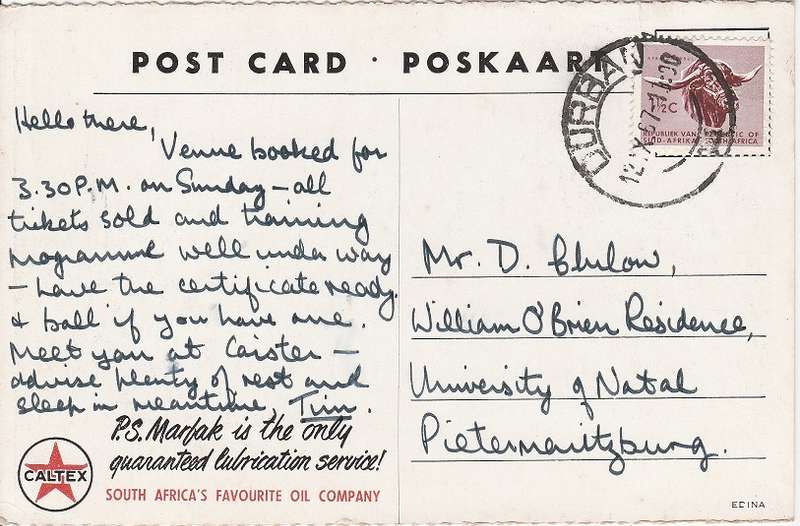 POST CARD · POSKAART
DURBAN
12 X 67-11 00
1½C
REPUBLIEK VAN REPUBLIC OF
SUID-AFRIKA SOUTH AFRICA
Hello there,
Venue booked for
3.30 P.M. on Sunday – all
tickets sold and training
programme well under way
– have the certificate ready,
& ball if you have one.
Meet you at Caister –
advise plenty of rest and
sleep in meantime, Tim.
P.S. Marfak is the only
guaranteed lubrication service!
CALTEX
SOUTH AFRICA'S FAVOURITE OIL COMPANY
Mr. D.
William O'Brien Residence,
University of Natal
Pietermaritzburg.
EDINA